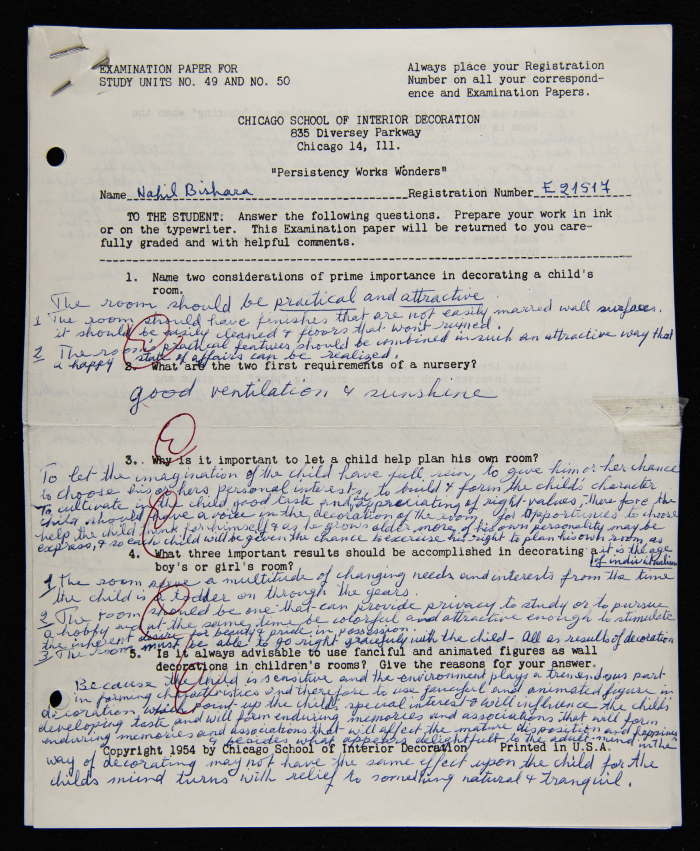 EXAMINATION PAPER FOR
STUDY UNITS NO. 49 AND NO. 50
Always place your Registration
Number on all your correspond-
ence and Examination Papers.
CHICAGO SCHOOL OF INTERIOR DECORATION
835 Diversey Parkway
Chicago 14, Ill.
"Persistency Works Wonders"
Name Nahil Bishara Registration Number E 21917
TO THE STUDENT: Answer the following questions. Prepare your work in ink
or on the typewriter. This Examination paper will be returned to you care-
fully graded and with helpful comments.
1. Name two considerations of prime importance in decorating a child's
room.
The room should be practical and attractive
1 The room should have finishes that are not easily marred wall surfaces.
it should be easily cleaned & floors that won't ruined.
2 The room's practical features should be combined in such an attractive way that
a happy state of affairs can be realized.
2. What are the two first requirements of a nursery?
good ventilation & sunshine
3. Why is it important to let a child help plan his own room?
To let the imagination of the child have full rein, to give him or her chance
to choose his or hers personal interests, to build & form the child's character
To cultivate in the child good taste and appreciating of right values, therefore the
child should have a voice in the decoration of the room, for opportunities to choose
help the child think for himself & as he grows older more of his own personality may be
express, & so each child will be given the chance to exercise his right to plan his own room, as
it is the age
of individualism
4. What three important results should be accomplished in decorating a
boy's or girl's room?
1 The room serve a multitude of changing needs and interests from the time
the child is a todder on through the years.
2 The room should be one that can provide privacy to study or to pursue
a hobby and at the same time be colorful and attractive enough to stimulate
the inherent desire for beauty & pride in possession.
3 The room must be able to go right gracefully with the child - All as results of decoration
5. Is it always advisable to use fanciful and animated figures as wall
decorations in children's rooms? Give the reasons for your answer.
Because the child is sensitive and the environment plays a transendous part
in forming characteristics and therefore to use fanciful and animated figure in
decoration which point up the child's special interest & will influence the child's
developing taste and will form enduring memories and associations that will form
enduring memories and associations that will affect the mature disposition and happiness
& besides what appears delightful to the adult mind in the
Copyright 1954 by Chicago School of Interior Decoration Printed in U.S.A.
way of decorating may not have the same effect upon the child for the
childs mind turns with relief to something natural & tranquil.